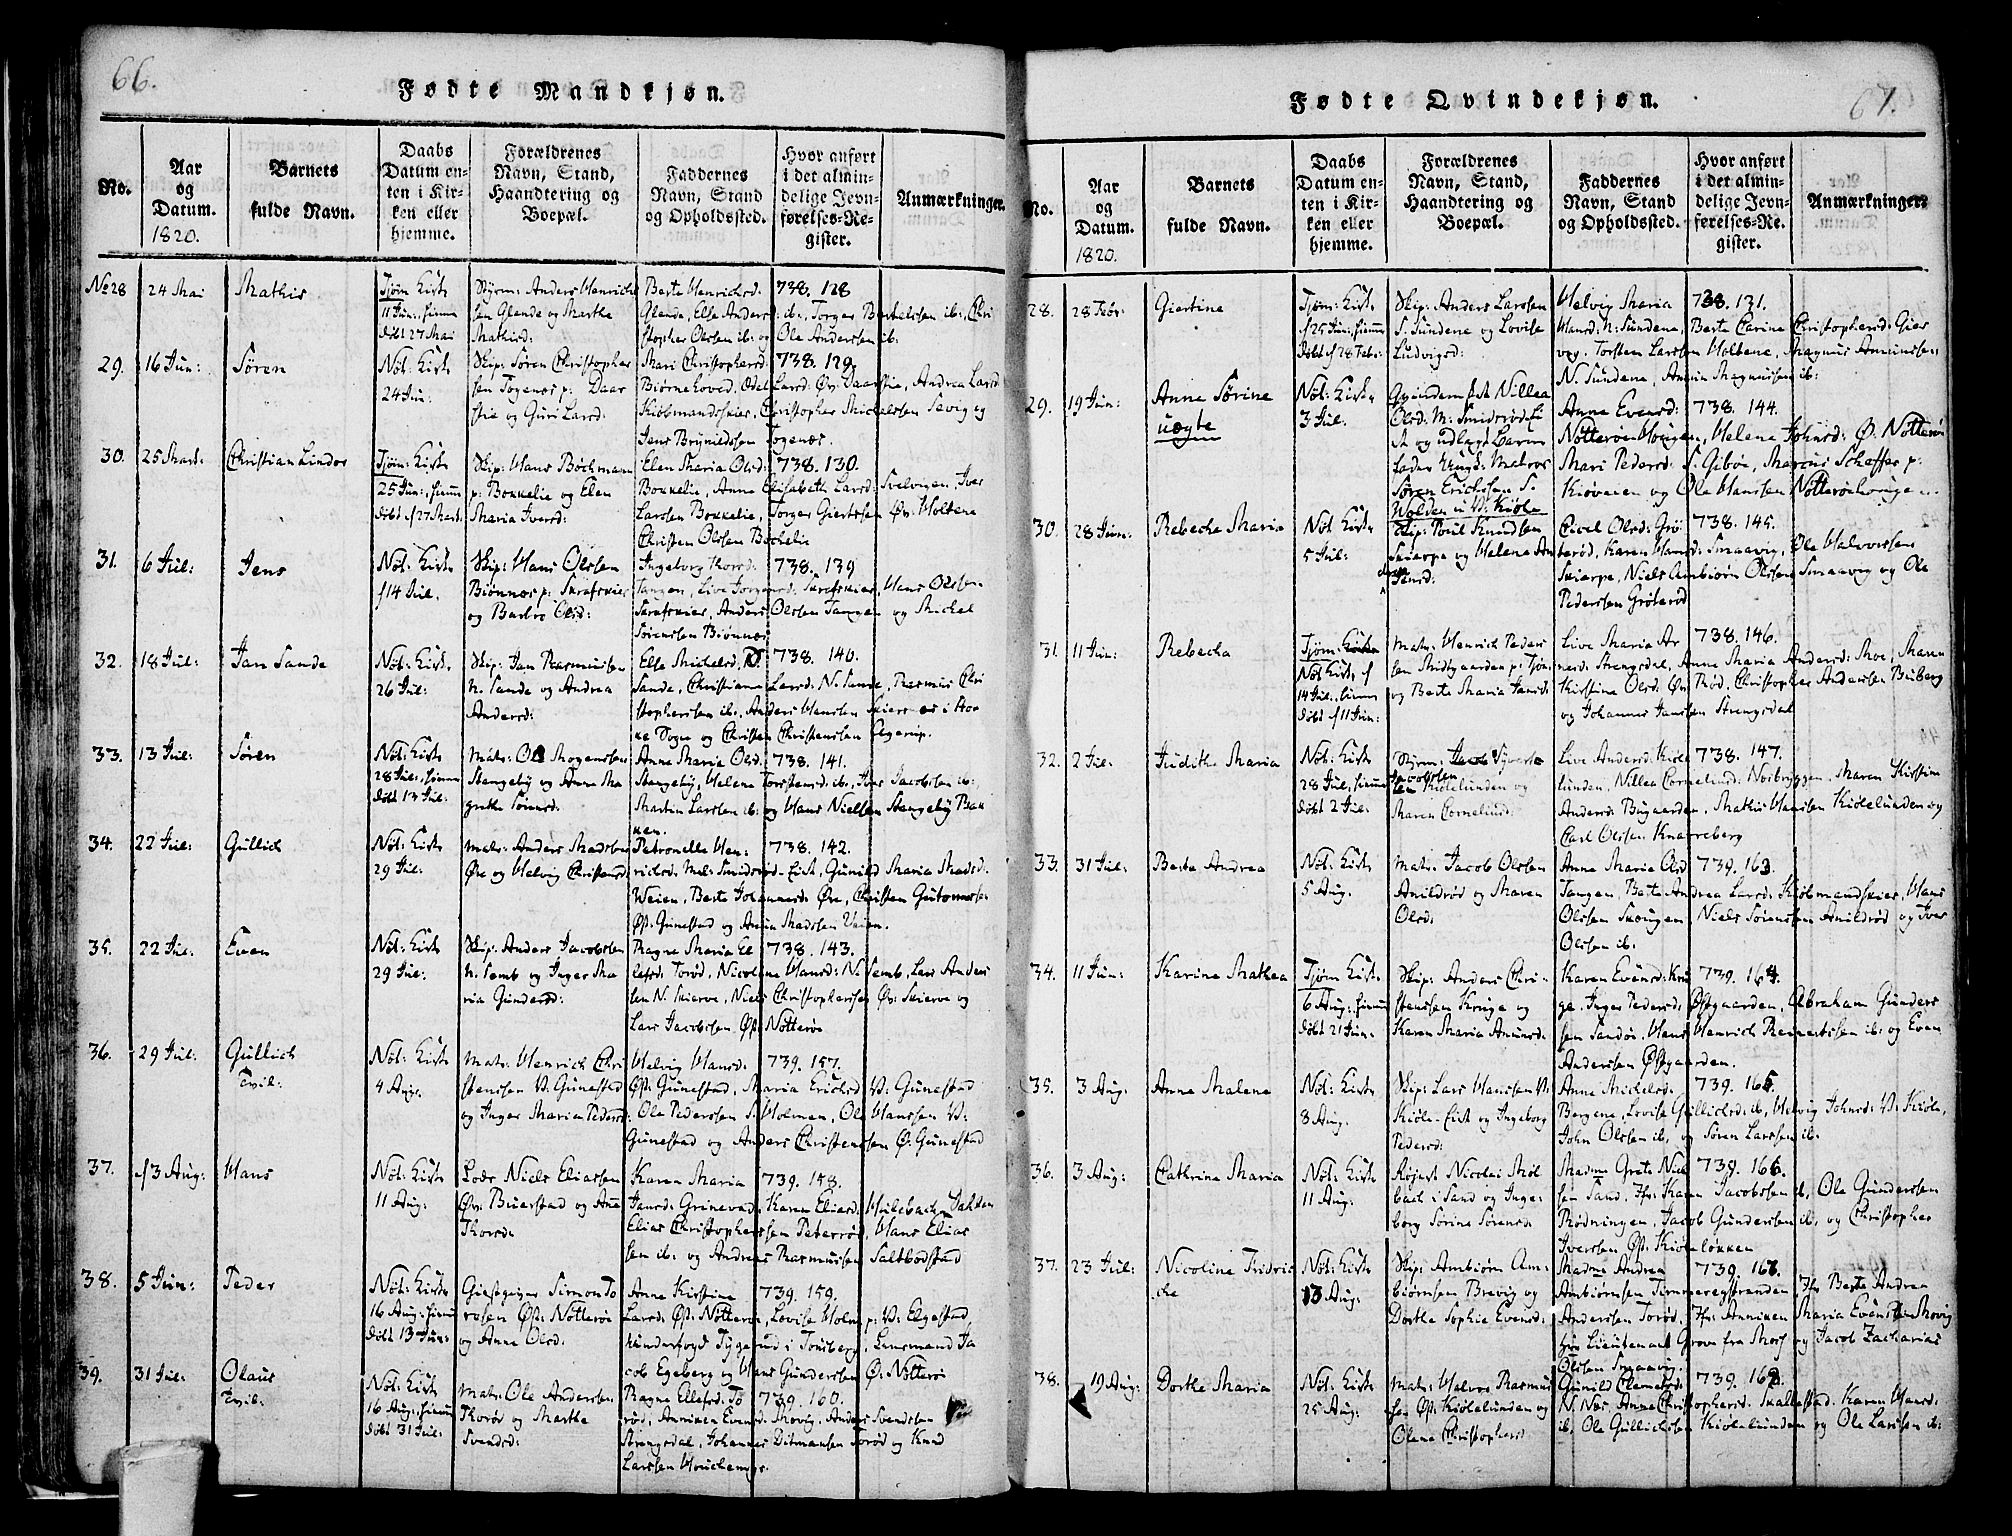 66.
Fødte Mandkjøn.
No.
Aar og Datum. 1820.
Barnets fulde Navn.
Daabs Datum enten i Kirken eller hjemme.
Forældrenes Navn, Stand, Haandtering og Boepæl.
Faddernes Navn, Stand og Opholdssted.
Hvor anført i det almindelige Jevnførelses-Register.
Anmærkninger.
No 28
24 Mai
Mathis
Tjøm Kirke
11 Jun:, hiemme
døbt 27 Mai
Styrm: Anders Henrichs
sen Glende og Marthe
Mathisd:
Berte Henrichsd: 738. 128
Glende, Else Andersd: ib., Torger Bertelsen ib:, Chri
stopher Olsen ib: og Ole Andersen ib:
29.
16 Jun:
Søren
Nøt: Kirke
24 Jun:
Skip: Søren Christopher
sen Togenes p: Daar
stie og Guri Larsd:
Mari Christophersd: 738. 129.
Biørnehoved, Odel Larsd: Øv: Daarstie, Andrea Larsd
Kiøbmandsskier, Christopher Michelsen Sevig og
Jens Brynildsen Togenes.
30.
25 Mart:
Christian Linder
Tjøm: Kirke
25 Jun:, hiemme
døbt 27 Mart:
Skip: Hans Bøckmann
p: Bokkelie og Elen
Maria Iversd:
Elen Maria Olsd: 738. 130.
Bokkelie, Anne Elisabeth Larsd: Svelvigen, Iver
Larsen Bokkelie, Torger Giertsen Øv: Holtene
Christen Olsen Bockelie
31.
6 Jul:
Jens
Nøt: Kirke
14 Jul.
Skip: Hans Olsen
Biønnes p: Skrafskier
og Barbro Olsd:
Ingeborg Thorsd: 738. 139
Tangen, Live Jørgensd: Skrafskier, Hans Olsen
Skrafskier, Anders Olsen Tangen og Michel
Sørensen Biønnes
32.
18 Jul:
Jan Sande
Nøt: Kirke
26 Jul:
Skip: Jan Rasmussen
N. Sande og Andrea
Andersd:
Else Michelsd, N. 738. 140.
Sande, Christiane Larsd: N. Sande, Rasmus Chri
stophersen ib:, Anders Hansen Skierve i Sto
ke Sogn og Christen Christensen Elgerup.
33.
13 Jul:
Søren
Nøt: Kirke
28 Jul:, hiemme
døbt 13 Jul:
Mats: Ole Mogensen
Stangeby og Anne Ma
grethe Sørensd:
Anne Maria Olsd: 738. 141.
Stangebÿ, Helene Torstensd: ib, Jens Jacobsen ib:
Martin Larsen ib: og Hans Nielsen Stangebÿ Bak
ken.
34.
22 Jul:
Gullich
Nøt: Kirke
29 Jul:
Mats: Anders Madsen
Øre og Helvig Christensd:
Petronelle Hen: 738. 142.
richsd: Mel: Smidsrød-Eist, Gunild Maria Madsd:
Weien, Berte Johannesd: Øre, Christen Gutormsen
Øst: Gunestad og Amin Madsen Veien.
35.
22 Jul:
Even
Nøt: Kirke
29 Jul:
Skip: Anders Jacobsen
N. Semb og Inger Ma
ria Gundersd:
Ragne Maria El 738. 143.
lefsd: Torød, Nicoline Hansd: N. Semb, Lars Anders
sen N. Skierve, Niels Christophersen Øv: Skierve og
Lars Jacobsen Øst: Nøtterøe
36.
29 Jul:
Gullich
Tvil:
Nøt: Kirke
4 Aug:
Mats: Henrich Chri
stensen V: Gunestad
og Inger Maria Pedersd:
Helvig Hansd: 739. 157.
Øst: Gunestad, Maria Erichsd: V: Gunestad
Ole Pedersen S: Holmen, Ole Hansen V:
Gunestad og Anders Christensen Ø: Gunestad
37.
3 Aug:
Hans
Nøt: Kirke
11 Aug:
Lods Niels Eliassen
Øv: Buerstad og Anne
Thorsd:
Karen Maria 739. 158.
Jansd: Grønevad, Karen Eliasd: Hulebach, Dahlen
Elias Christophersen Petersrød, Hans Elias
sen ib: og Andreas Rasmussen Saltbodstad
38.
5 Jun:
Peder
Nøt: Kirke
16 Aug:, hiemme
døbt 13 Jun:
Giestgiver Simon To
rosen Øst: Nøtterøe
og Anne Olsd:
Anne Kirstine 739. 159.
Larsd: Øst: Nøtterøe, Lovise Holm p: V: Elgestad
kunderfogd Tygesen i Tønsberg, Lensmand Ja
cob Egeberg og Hans Gundersen Ø: Nøtterøe
39.
31 Jul:
Olaus
Tvil:
Nøt: Kirke
16 Aug:, hiemme
døbt 31 Jul:
Mats: Ole Andersen
Thorød og Marthe
Svendsd:
Ragne Ellefsd: To 739. 160.
rød, Anniken Evensd: Hovig, Anders Svendsen
Strengsdal, Johannes Ditmansen Torød og Knud
Larsen
67.
Fødte Qvindekjøn.
No.
Aar og Datum. 1820.
Barnets fulde Navn.
Daabs Datum enten i Kirken eller hjemme.
Forældrenes Navn, Stand, Haandtering og Boepæl.
Faddernes Navn, Stand og Opholdssted.
Hvor anført i det almindelige Jevnførelses-Register.
Anmærkninger.
28.
28 Febr:
Giertine
Tjøm: Kirke
25 Jun:, hiemme
døbt 28 Febr:
Skip: Anders Larsen
S. Sundene og Lovise
Ludvigsd:
Helvig Maria 738. 131.
Hansd: N: Sundene, Berte Carine Christophersd: Gier
vog. Torsten Larsen Holtene, Magnus Amundsen
N. Sundene, Amin Magnussen ib:
29.
19 Jun:
Anne Sørine
uægte
Nøt: Kirke
3 Jul:
Qvindem: Nillea
Olsd: M: Smidsrød Ei
st og udlagt Barne
fader Ungk: Matros
Søren Ericksen S.
Wolden u: V: Kiøle
Anne Evensd: 738. 144.
Nøtterøe Hougen, Helene Johnsd: Ø. Nøtterøe
Mari Pedersd: S. Gibøe, Marcus Scheffer p:
Kiøveien og Ole Hansen Nøtterøehougen
30.
28 Jun:
Rebecka Maria
Nøt: Kirke
5 Jul:
Skip: Poul Knudsen
Skierpe og Helene An
dersd:
Civel Olsd: Grø 738. 145.
terød, Karen Hansd: Smaavig, Ole Halvorsen
Skierpe, Niels Ambiørn Olsen Smaavig og Ole
Pedersen Grøterød
31.
11 Jun:
Rebecka
Tjøm:
Nøt Kirke
14 Jul:, hiemme
døbt 11 Jun:
Mats: Henrich Peders
sen Midtgaarden p: Tjøm
og Berte Maria Jansd:
Live Maria Ar 738. 146.
nesd: Strengsdal, Anne Maria Andersd: Moe, Maren
Kirstine Olsd: Øv: Rød, Christopher Andersen Buberg
og Johannes Jansen Strengsdal
32.
2 Jul:
Judithe Maria
Nøt: Kirke
28 Jul, hiemme
døbt 2 Jul:
Styrm: Syvert
Jacobsen
Kiølelunden og
Maren Cornelisd:
Live Andersd: Kiøle 738. 147.
lunden, Nillea Cornelisd: Norbryggen, Maren Kirstine
Andersd: Bugaarden, Mathis Hansen Kiølelunden og
Carl Olsen Knarreberg
33.
31 Jul:
Berte Andrea
Nøt: Kirke
5 Aug.
Mats: Jacob Olsen
Amildrød og Maren
Olsd:
Anne Maria Olsd 739. 163.
Tangen, Berte Andrea Larsd: Kiøbmandsskier, Hans
Olsen Skougen, Niels Sørensen Amildrød og Iver
Olsen ib:
34.
11 Jun:
Karine Mathea
Tjøm Kirke
6 Aug:, hiemme
døbt 21 Jun:
Skip: Anders Chri-
stensen Kruge og
Karen Maria Amunsd:
Karen Evensd: Kru 739. 164.
ge, Inger Pedersd: Østgaarden, Abraham Gunders
sen Sandøe, Hans Henrich Reinertsen ib: og Even
Andersen Østgaarden.
35.
3 Aug:
Anne Malene
Nøt: Kirke
8 Aug:
Skip: Lars Hansen V:
Kiøle-Eist og Ingeborg
Pedersd:
Anne Michelsd: 739. 165.
Bergene, Lovise Gullichsd: ib, Helvig Johnsd: V: Kiøle,
John Olsen ib, og Søren Larsen ib:
36.
3 Aug:
Cathrine Maria
Nøt: Kirke
11 Aug:
Røgest. Nicolai Møl
bach i Sand og Inge-
borg Sørine Sørensd:
Madme Grete Niel 739. 166.
sen Sand, Jfr: Karen Jacobsen ib, Ole Gundersen
Rødningen, Jacob Gundersen ib, og Christopher
Iversen Øst: Kiøleløkken
37.
23 Jul:
Nicoline Fridric
che
Nøt: Kirke
13 Aug:
Skip: Ambiørn Am-
biørnsen Brevig og
Dorthe Sophie Evensd:
Madme Andrea 739. 167.
Ambiørnsen Timmeregstranden, Jfr: Berte Andrea
Andersen Torød, Jfr: Anniken Maria Evensen Hovig
Lieutenant Grove fra Moss og Jacob Zacharias
Olsen Smaavig.
38.
19 Aug:
Dorthe Maria
Nøt: Kirke
25 Aug:
Mats: Halvor Rasmus
sen Øst: Kiølelunden og
Olene Christophersd:
Gunild Clemetsd: 739. 168.
N. Nes, Anne Christophersd: Skallestad, Karen Hansd:
ib, Ole Gullichsen Kiølelunden og Ole Larsen ib: